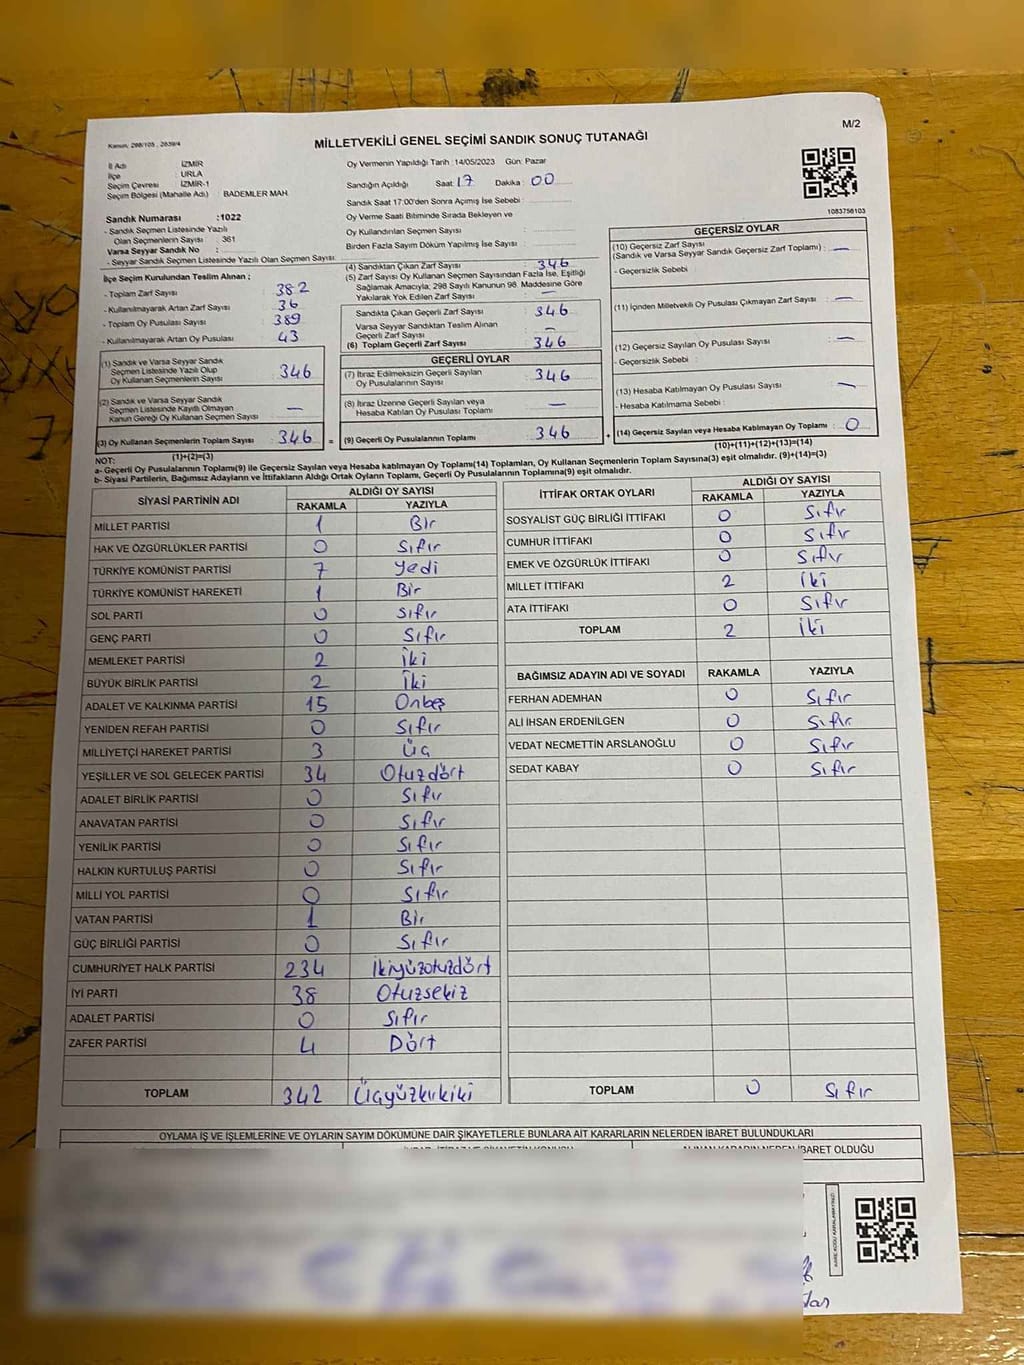 M/2
Kanun, 298/105 , 2839/4
MİLLETVEKİLİ GENEL SEÇİMİ SANDIK SONUÇ TUTANAĞI
İl Adı : İZMİR
İlçe : URLA
Seçim Çevresi : İZMİR-1
Seçim Bölgesi (Mahalle Adı) : BADEMLER MAH.
Sandık Numarası :1022
- Sandık Seçmen Listesinde Yazılı
Olan Seçmenlerin Sayısı : 361
Varsa Seyyar Sandık No :
- Seyyar Sandık Seçmen Listesinde Yazılı Olan Seçmen Sayısı:
Oy Vermenin Yapıldığı Tarih :14/05/2023 Gün: Pazar
Sandığın Açıldığı Saat :17 Dakika : 00
Sandık Saat 17:00'den Sonra Açımış İse Sebebi :
Oy Verme Saati Bitiminde Sırada Bekleyen ve
Oy Kullandırılan Seçmen Sayısı :
Birden Fazla Sayım Döküm Yapılmış İse Sayısı :
1083756103
İlçe Seçim Kurulundan Teslim Alınan ;
- Toplam Zarf Sayısı : 382
- Kullanılmayarak Artan Zarf Sayısı : 36
- Toplam Oy Pusulası Sayısı : 389
- Kullanılmayarak Artan Oy Pusulası : 43
(1) Sandık ve Varsa Seyyar Sandık
Seçmen Listesinde Yazılı Olup
Oy Kullanan Seçmenlerin Sayısı : 346
(2) Sandık ve Varsa Seyyar Sandık
Seçmen Listesinde Kayıtlı Olmayan
Kanun Gereği Oy Kullanan Seçmen Sayısı : —
(3) Oy Kullanan Seçmenlerin Toplam Sayısı : 346
(1)+(2)=(3)
(4) Sandıktan Çıkan Zarf Sayısı : 346
(5) Zarf Sayısı Oy Kullanan Seçmen Sayısından Fazla İse, Eşitliği
Sağlamak Amacıyla; 298 Sayılı Kanunun 98. Maddesine Göre
Yakılarak Yok Edilen Zarf Sayısı : —
Sandıkta Çıkan Geçerli Zarf Sayısı : 346
Varsa Seyyar Sandıktan Teslim Alınan
Geçerli Zarf Sayısı : —
(6) Toplam Geçerli Zarf Sayısı : 346
GEÇERLİ OYLAR
(7) İtiraz Edilmeksizin Geçerli Sayılan
Oy Pusulalarının Sayısı : 346
(8) İtiraz Üzerine Geçerli Sayılan veya
Hesaba Katılan Oy Pusulası Toplamı : —
= (9) Geçerli Oy Pusulalarının Toplamı : 346
GEÇERSİZ OYLAR
(10) Geçersiz Zarf Sayısı
(Sandık ve Varsa Seyyar Sandık Geçersiz Zarf Toplamı) : —
- Geçersizlik Sebebi :
(11) İçinden Milletvekili Oy Pusulası Çıkmayan Zarf Sayısı : —
(12) Geçersiz Sayılan Oy Pusulası Sayısı : —
- Geçersizlik Sebebi :
(13) Hesaba Katılmayan Oy Pusulası Sayısı : —
- Hesaba Katılmama Sebebi :
+ (14) Geçersiz Sayılan veya Hesaba Katılmayan Oy Toplamı : 0
(10)+(11)+(12)+(13)=(14)
NOT:
a- Geçerli Oy Pusulalarının Toplamı(9) ile Geçersiz Sayılan veya Hesaba katılmayan Oy Toplamı(14) Toplamları, Oy Kullanan Seçmenlerin Toplam Sayısına(3) eşit olmalıdır. (9)+(14)=(3)
b- Siyasi Partilerin, Bağımsız Adayların ve İttifakların Aldığı Ortak Oyların Toplamı, Geçerli Oy Pusulalarının Toplamına(9) eşit olmalıdır.
SİYASİ PARTİNİN ADI ALDIĞI OY SAYISI
RAKAMLA YAZIYLA
MİLLET PARTİSİ 1 Bir
HAK VE ÖZGÜRLÜKLER PARTİSİ 0 Sıfır
TÜRKİYE KOMÜNİST PARTİSİ 7 Yedi
TÜRKİYE KOMÜNİST HAREKETİ 1 Bir
SOL PARTİ 0 Sıfır
GENÇ PARTİ 0 Sıfır
MEMLEKET PARTİSİ 2 İki
BÜYÜK BİRLİK PARTİSİ 2 İki
ADALET VE KALKINMA PARTİSİ 15 Onbeş
YENİDEN REFAH PARTİSİ 0 Sıfır
MİLLİYETÇİ HAREKET PARTİSİ 3 Üç
YEŞİLLER VE SOL GELECEK PARTİSİ 34 Otuzdört
ADALET BİRLİK PARTİSİ 0 Sıfır
ANAVATAN PARTİSİ 0 Sıfır
YENİLİK PARTİSİ 0 Sıfır
HALKIN KURTULUŞ PARTİSİ 0 Sıfır
MİLLİ YOL PARTİSİ 0 Sıfır
VATAN PARTİSİ 1 Bir
GÜÇ BİRLİĞİ PARTİSİ 0 Sıfır
CUMHURİYET HALK PARTİSİ 234 İkiyüzotuzdört
İYİ PARTİ 38 Otuzsekiz
ADALET PARTİSİ 0 Sıfır
ZAFER PARTİSİ 4 Dört
TOPLAM 342 Üçyüzkırkiki
İTTİFAK ORTAK OYLARI ALDIĞI OY SAYISI
RAKAMLA YAZIYLA
SOSYALİST GÜÇ BİRLİĞİ İTTİFAKI 0 Sıfır
CUMHUR İTTİFAKI 0 Sıfır
EMEK VE ÖZGÜRLÜK İTTİFAKI 0 Sıfır
MİLLET İTTİFAKI 2 İki
ATA İTTİFAKI 0 Sıfır
TOPLAM 2 İki
BAĞIMSIZ ADAYIN ADI VE SOYADI RAKAMLA YAZIYLA
FERHAN ADEMHAN 0 Sıfır
ALİ İHSAN ERDENİLGEN 0 Sıfır
VEDAT NECMETTİN ARSLANOĞLU 0 Sıfır
SEDAT KABAY 0 Sıfır
TOPLAM 0 Sıfır
OYLAMA İŞ VE İŞLEMLERİNE VE OYLARIN SAYIM DÖKÜMÜNE DAİR ŞİKAYETLERLE BUNLARA AİT KARARLARIN NELERDEN İBARET BULUNDUKLARI
ALINAN KARARIN NEDEN İBARET OLDUĞU